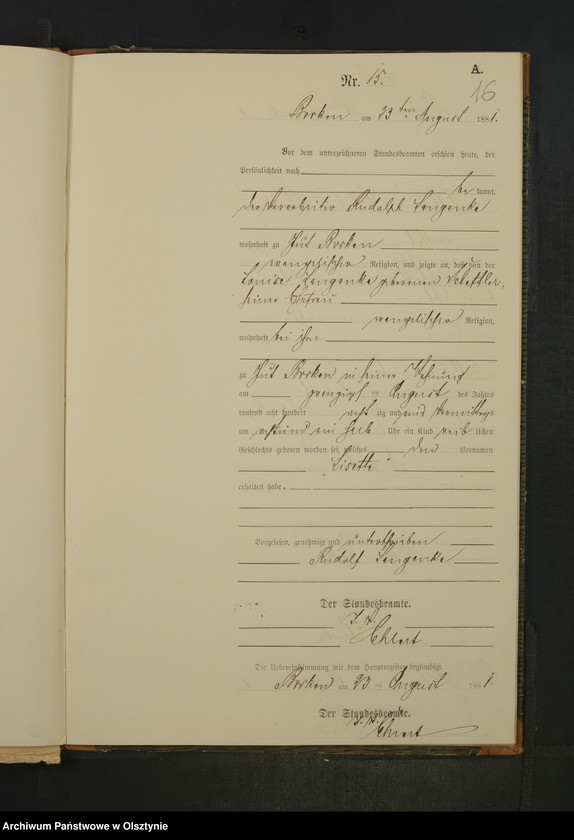 A.
Nr. 15.
16
Borken am 23 ten August 1881.
Vor dem unterzeichneten Standesbeamten erschien heute, der
Persönlichkeit nach
be kannt,
der Rudolph Langenke
wohnhaft zu Gut Borken
evangelischer Religion, und zeigte an, daß von der
Louise Langenke geborenen Scheffler,
seiner Ehefrau
evangelischer Religion,
wohnhaft bei ihm
zu Gut Borken in seiner Wohnung
am zwanzigsten August des Jahres
tausend acht hundert acht zig und eins Vormittags
um acht und ein halb Uhr ein Kind weib lichen
Geschlechts geboren worden sei, welches den Vornamen
"Lisette"
erhalten habe.
Vorgelesen, genehmigt und unterschrieben
Rudolf Langenke
Der Standesbeamte.
Ehlert
Die Uebereinstimmung mit dem Hauptregister beglaubigt
Borken am 23 ten August 1881.
Der Standesbeamte.
Ehlert
Archiwum Państwowe w Olsztynie